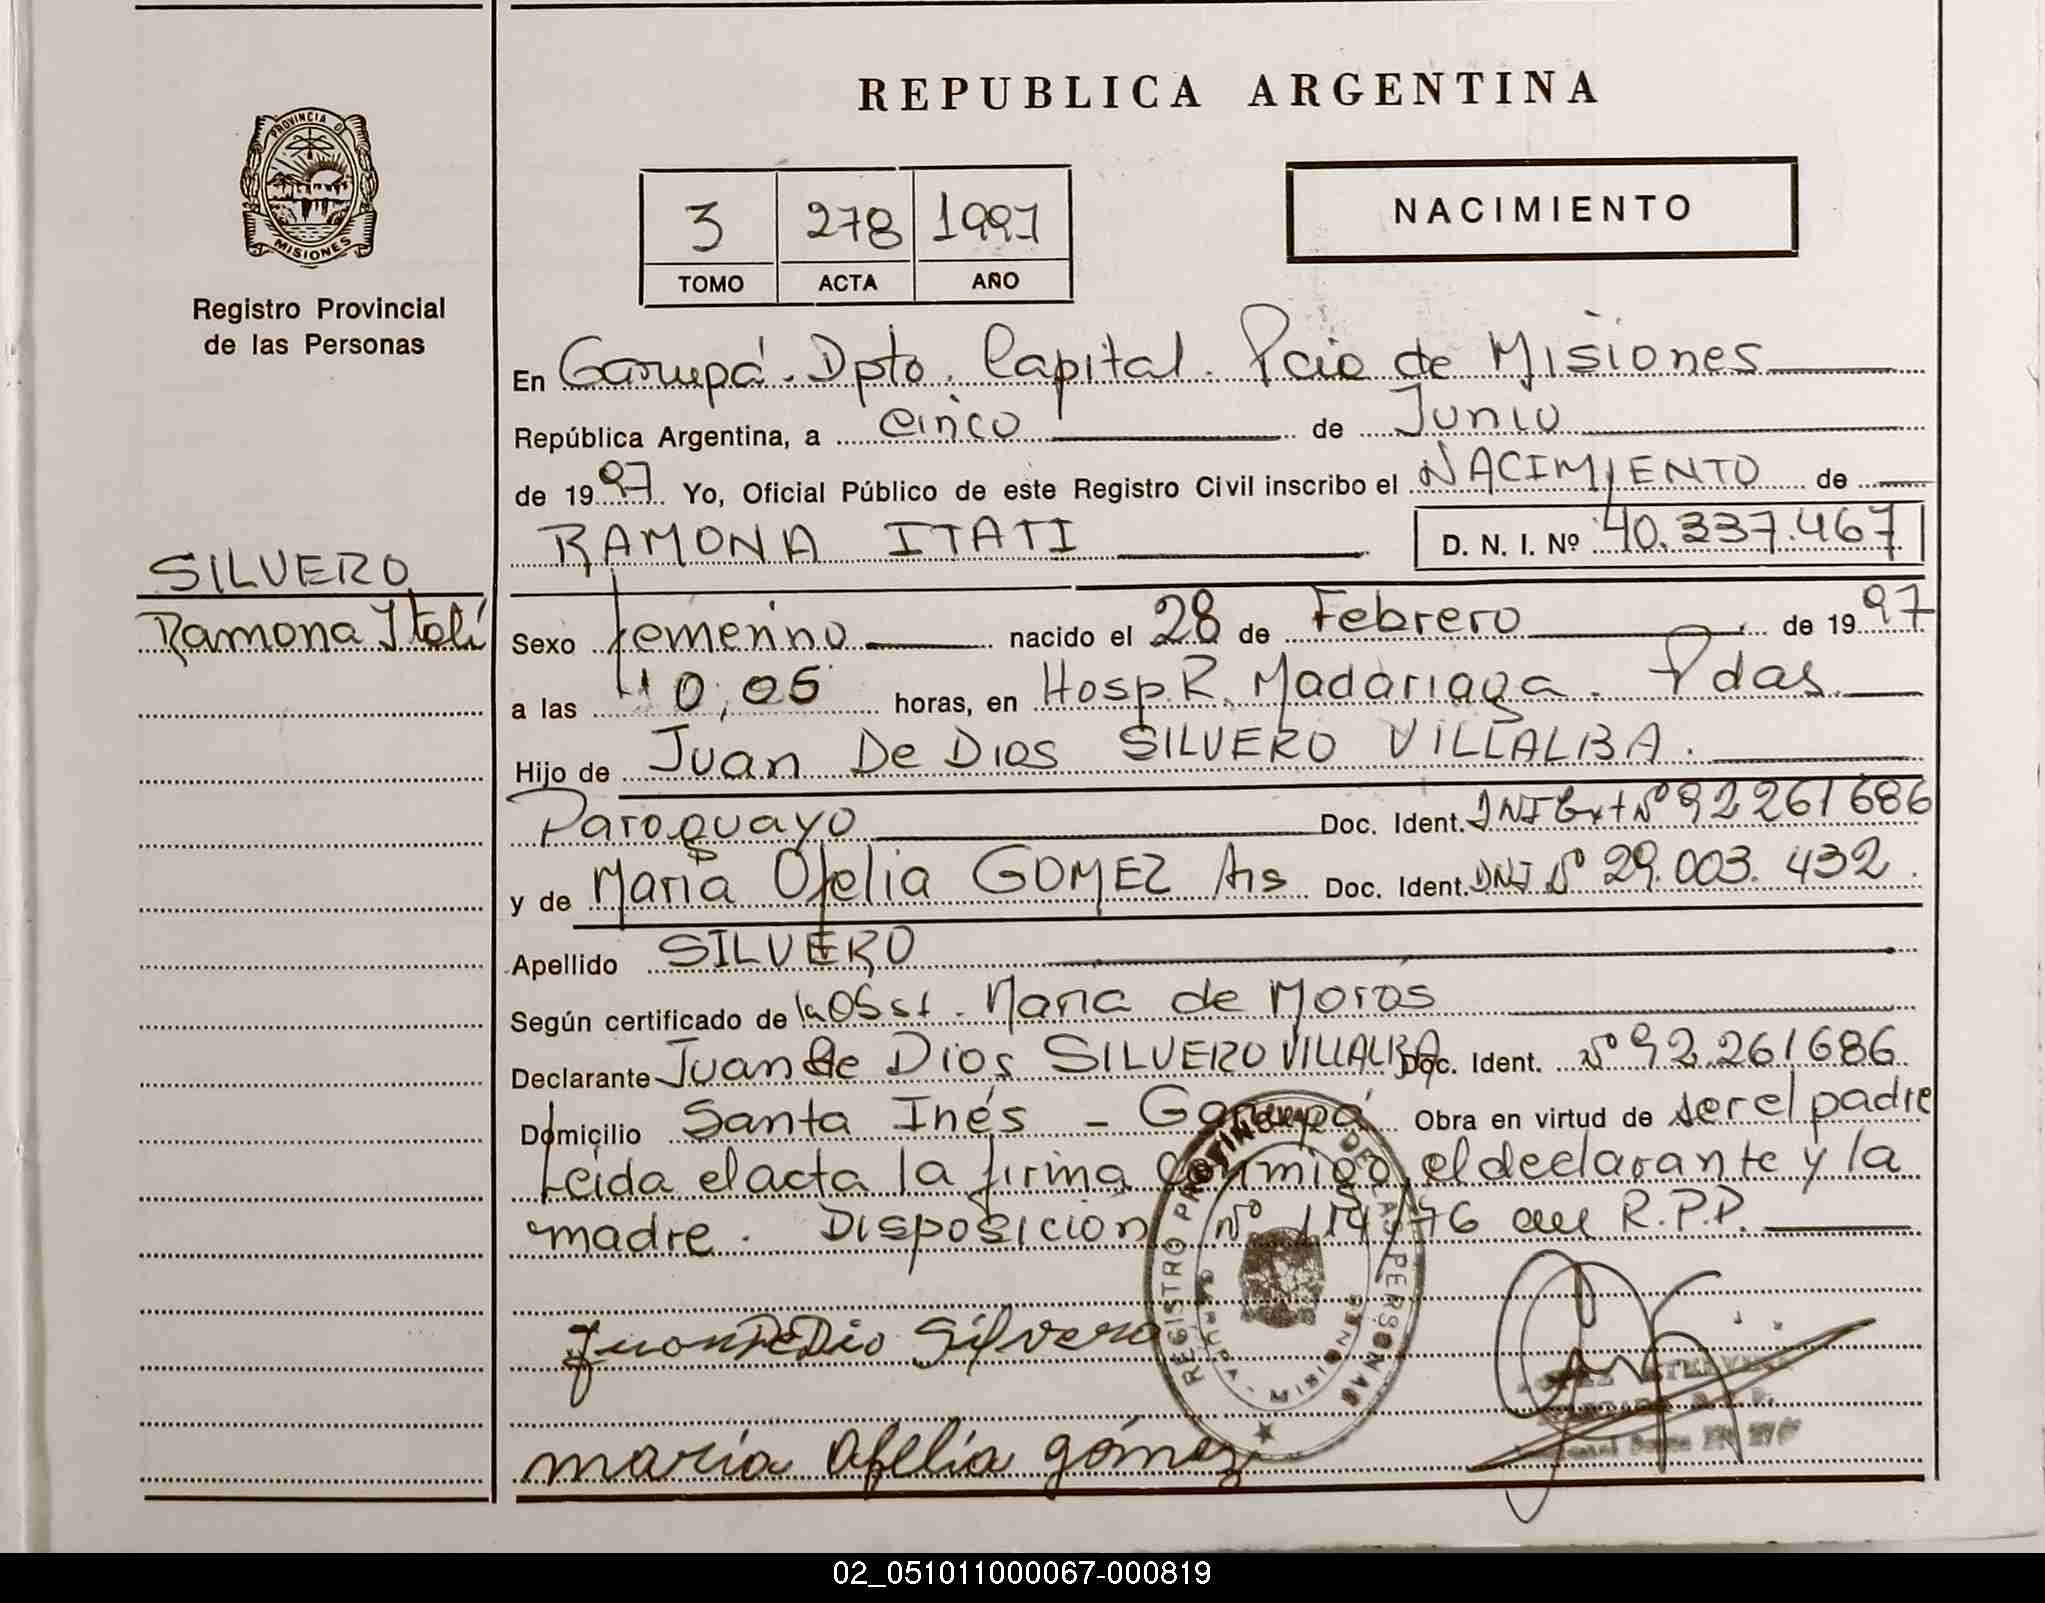 REPUBLICA ARGENTINA
PROVINCIA DE
MISIONES
Registro Provincial
de las Personas
3 278 1997
TOMO ACTA AÑO
NACIMIENTO
En Garupá. Dpto. Capital. Pcia de Misiones
República Argentina, a cinco de Junio
de 1997 Yo, Oficial Público de este Registro Civil inscribo el NACIMIENTO de
RAMONA ITATI D. N. I. Nº 40.337.467
SILVERO
Ramona Itatí
Sexo femenino nacido el 28 de Febrero de 1997
a las 10,05 horas, en Hosp. R. Madariaga. Pdas
Hijo de Juan De Dios SILVERO VILLALBA.
Paraguayo Doc. Ident. DNI Ext Nº 92261686
y de María Ofelia GOMEZ Doc. Ident. DNI Nº 29.003.432.
Apellido SILVERO
Según certificado de la Obst. María de Moros
Declarante Juan de Dios SILVERO VILLALBA Doc. Ident. Nº 92.261686
Domicilio Santa Inés - Garupá Obra en virtud de ser el padre
Leida el acta la firma conmigo, el declarante y la
madre. Disposicion Nº /76 R.P.P.
Juan De Dio Silvero
maría ofelia gómez
REGISTRO PROVINCIAL DE LAS PERSONAS
GARUPA - MISIONES
02_051011000067-000819